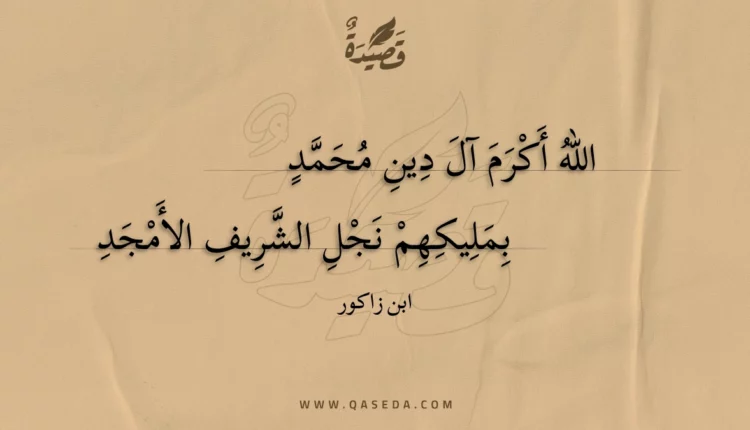 قَصِيْدَةٌ
اللهُ أَكْرَمَ آلَ دِينِ مُحَمَّدٍ
بِمَلِيكِهِمْ نَجْلِ الشَّرِيفِ الأَمْجَدِ
ابن زاكور
WWW.QASEDA.COM